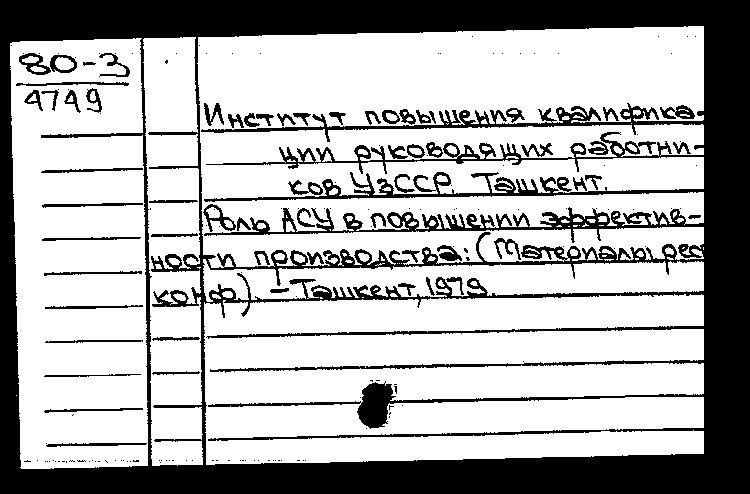 80-3
4749
Институт повышения квалифика-
ции руководящих работни-
ков УзССР. Ташкент.
Роль АСУ в повышении эффектив-
ности производства: (Материалы респ
конф.). - Ташкент, 1979.